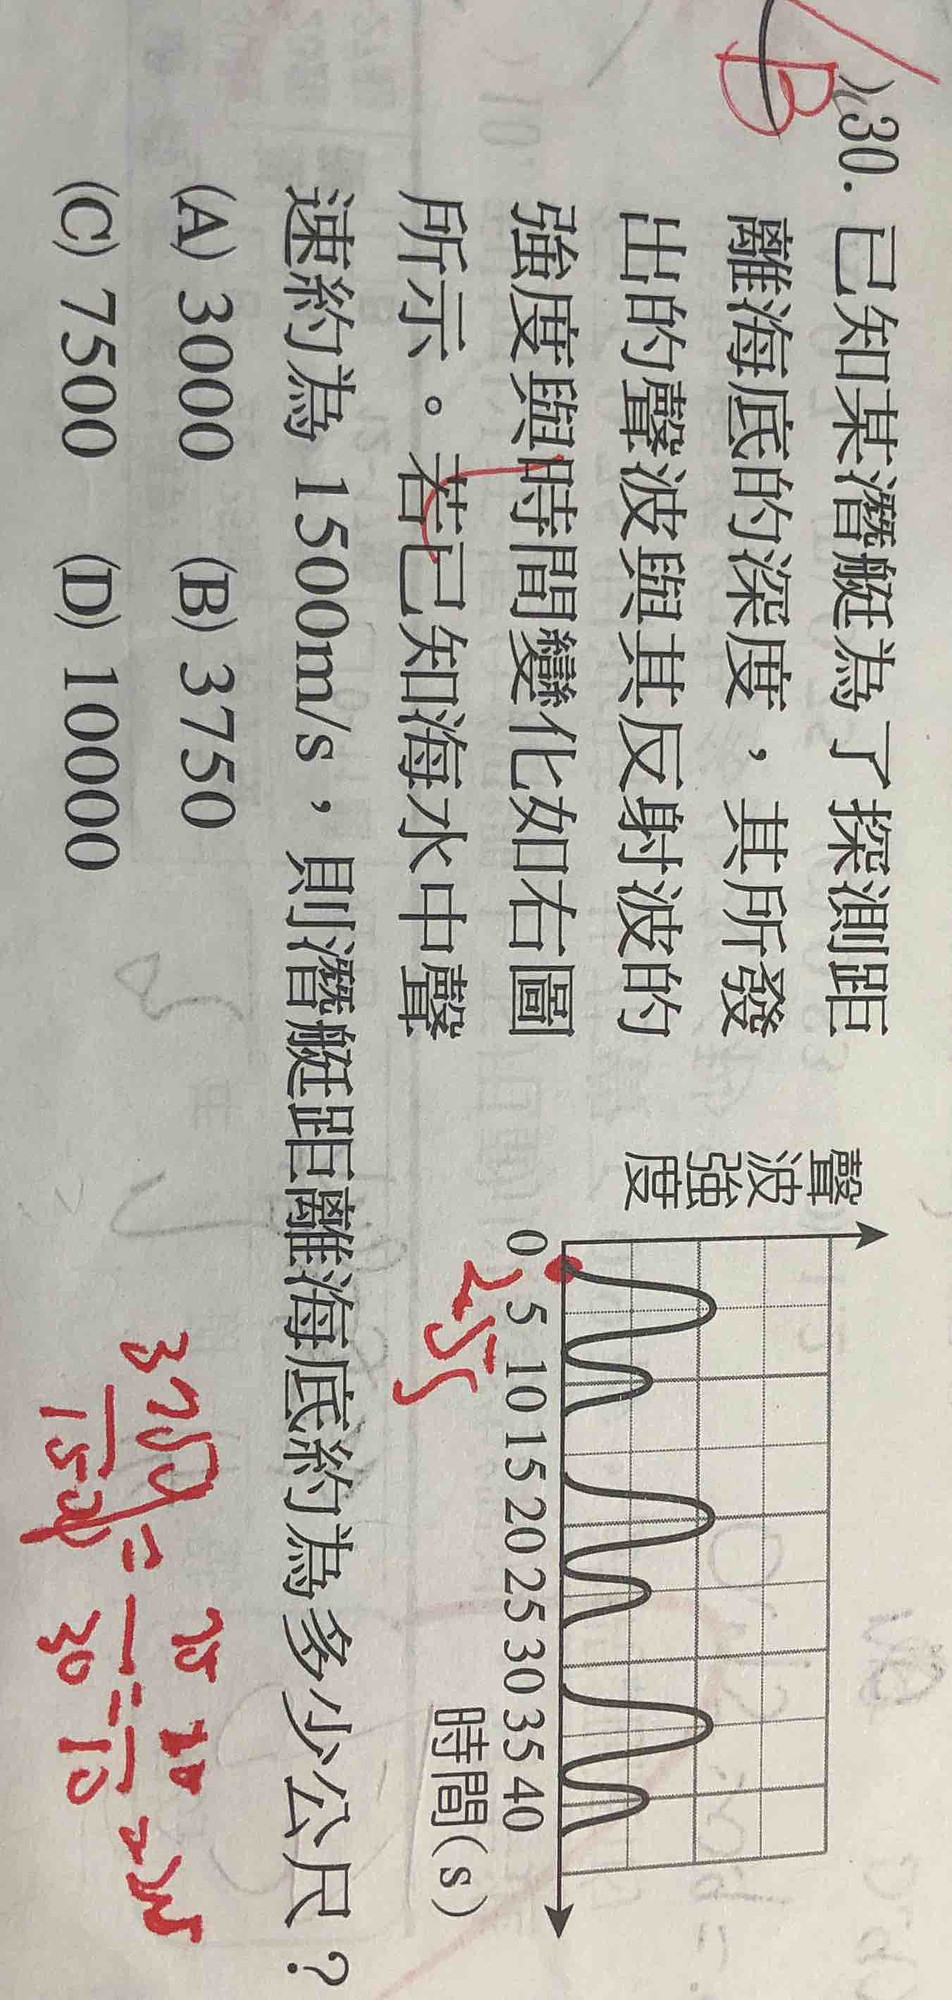 B
)(30. 已知某潛艇為了探測距
離海底的深度，其所發
出的聲波與其反射波的
強度與時間變化如右圖
所示。若已知海水中聲
速約為 1500m/s，則潛艇距離海底約為多少公尺？
(A) 3000 (B) 3750
(C) 7500 (D) 10000
聲波強度
0 5 10 15 20 25 30 35 40
時間(s)